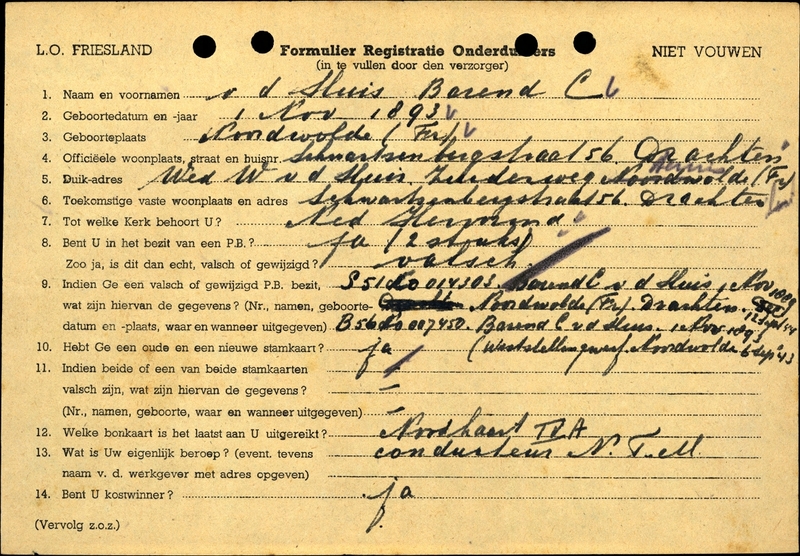 L.O. FRIESLAND Formulier Registratie Onderduikers NIET VOUWEN
(in te vullen door den verzorger)
1. Naam en voornamen v d Sluis Barend C
2. Geboortedatum en -jaar 1 Nov 1893
3. Geboorteplaats Noordwolde (Fr)
4. Officiëele woonplaats, straat en huisnr. Schwartzenbergstraat 56 Drachten
5. Duik-adres Wed W v d Sluis, Zuiderweg Noordwolde (Fr)
6. Toekomstige vaste woonplaats en adres Schwartzenbergstraat 56. Drachten
7. Tot welke Kerk behoort U? Ned Hervormd
8. Bent U in het bezit van een P.B.? ja (2 stuks)
Zoo ja, is dit dan echt, valsch of gewijzigd? valsch.
9. Indien Ge een valsch of gewijzigd P.B. bezit, S 51 No 014303. Barend C v d Sluis 1 Nov
wat zijn hiervan de gegevens? (Nr., namen, geboorte- Noordwolde (Fr) Drachten.
datum en -plaats, waar en wanneer uitgegeven) B 56 No 007450. Barend C v d Sluis. 1 Nov. 1893
10. Hebt Ge een oude en een nieuwe stamkaart? ja (Weststellingwerf Noordwolde 6 Sep '43
11. Indien beide of een van beide stamkaarten
valsch zijn, wat zijn hiervan de gegevens? –
(Nr., namen, geboorte, waar en wanneer uitgegeven) –
12. Welke bonkaart is het laatst aan U uitgereikt? Noodkaart IV A
13. Wat is Uw eigenlijk beroep? (event. tevens conducteur N. T. M.
naam v. d. werkgever met adres opgeven)
14. Bent U kostwinner? ja
(Vervolg z.o.z.)